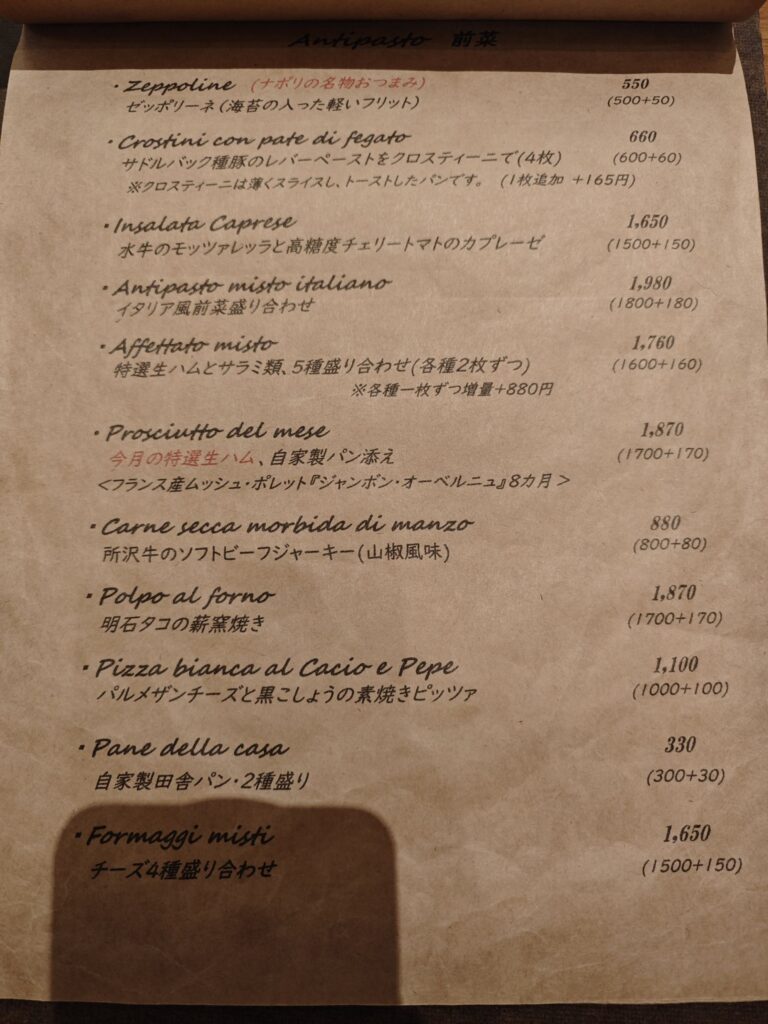 Antipasto 前菜
・Zeppoline (ナポリの名物おつまみ) 550
ゼッポリーネ(海苔の入った軽いフリット) (500+50)
・Crostini con pate di fegato 660
サドルバック種豚のレバーペーストをクロスティーニで(4枚) (600+60)
※クロスティーニは薄くスライスし、トーストしたパンです。 (1枚追加 +165円)
・Insalata Caprese 1,650
水牛のモッツァレッラと高糖度チェリートマトのカプレーゼ (1500+150)
・Antipasto misto italiano 1,980
イタリア風前菜盛り合わせ (1800+180)
・Affettato misto 1,760
特選生ハムとサラミ類、5種盛り合わせ(各種2枚ずつ) (1600+160)
※各種一枚ずつ増量+880円
・Prosciutto del mese 1,870
今月の特選生ハム、自家製パン添え (1700+170)
<フランス産ムッシュ・ポレット『ジャンボン・オーベルニュ』8カ月>
・Carne secca morbida di manzo 880
所沢牛のソフトビーフジャーキー(山椒風味) (800+80)
・Polpo al forno 1,870
明石タコの薪窯焼き (1700+170)
・Pizza bianca al Cacio e Pepe 1,100
パルメザンチーズと黒こしょうの素焼きピッツァ (1000+100)
・Pane della casa 330
自家製田舎パン・2種盛り (300+30)
・Formaggi misti 1,650
チーズ4種盛り合わせ (1500+150)